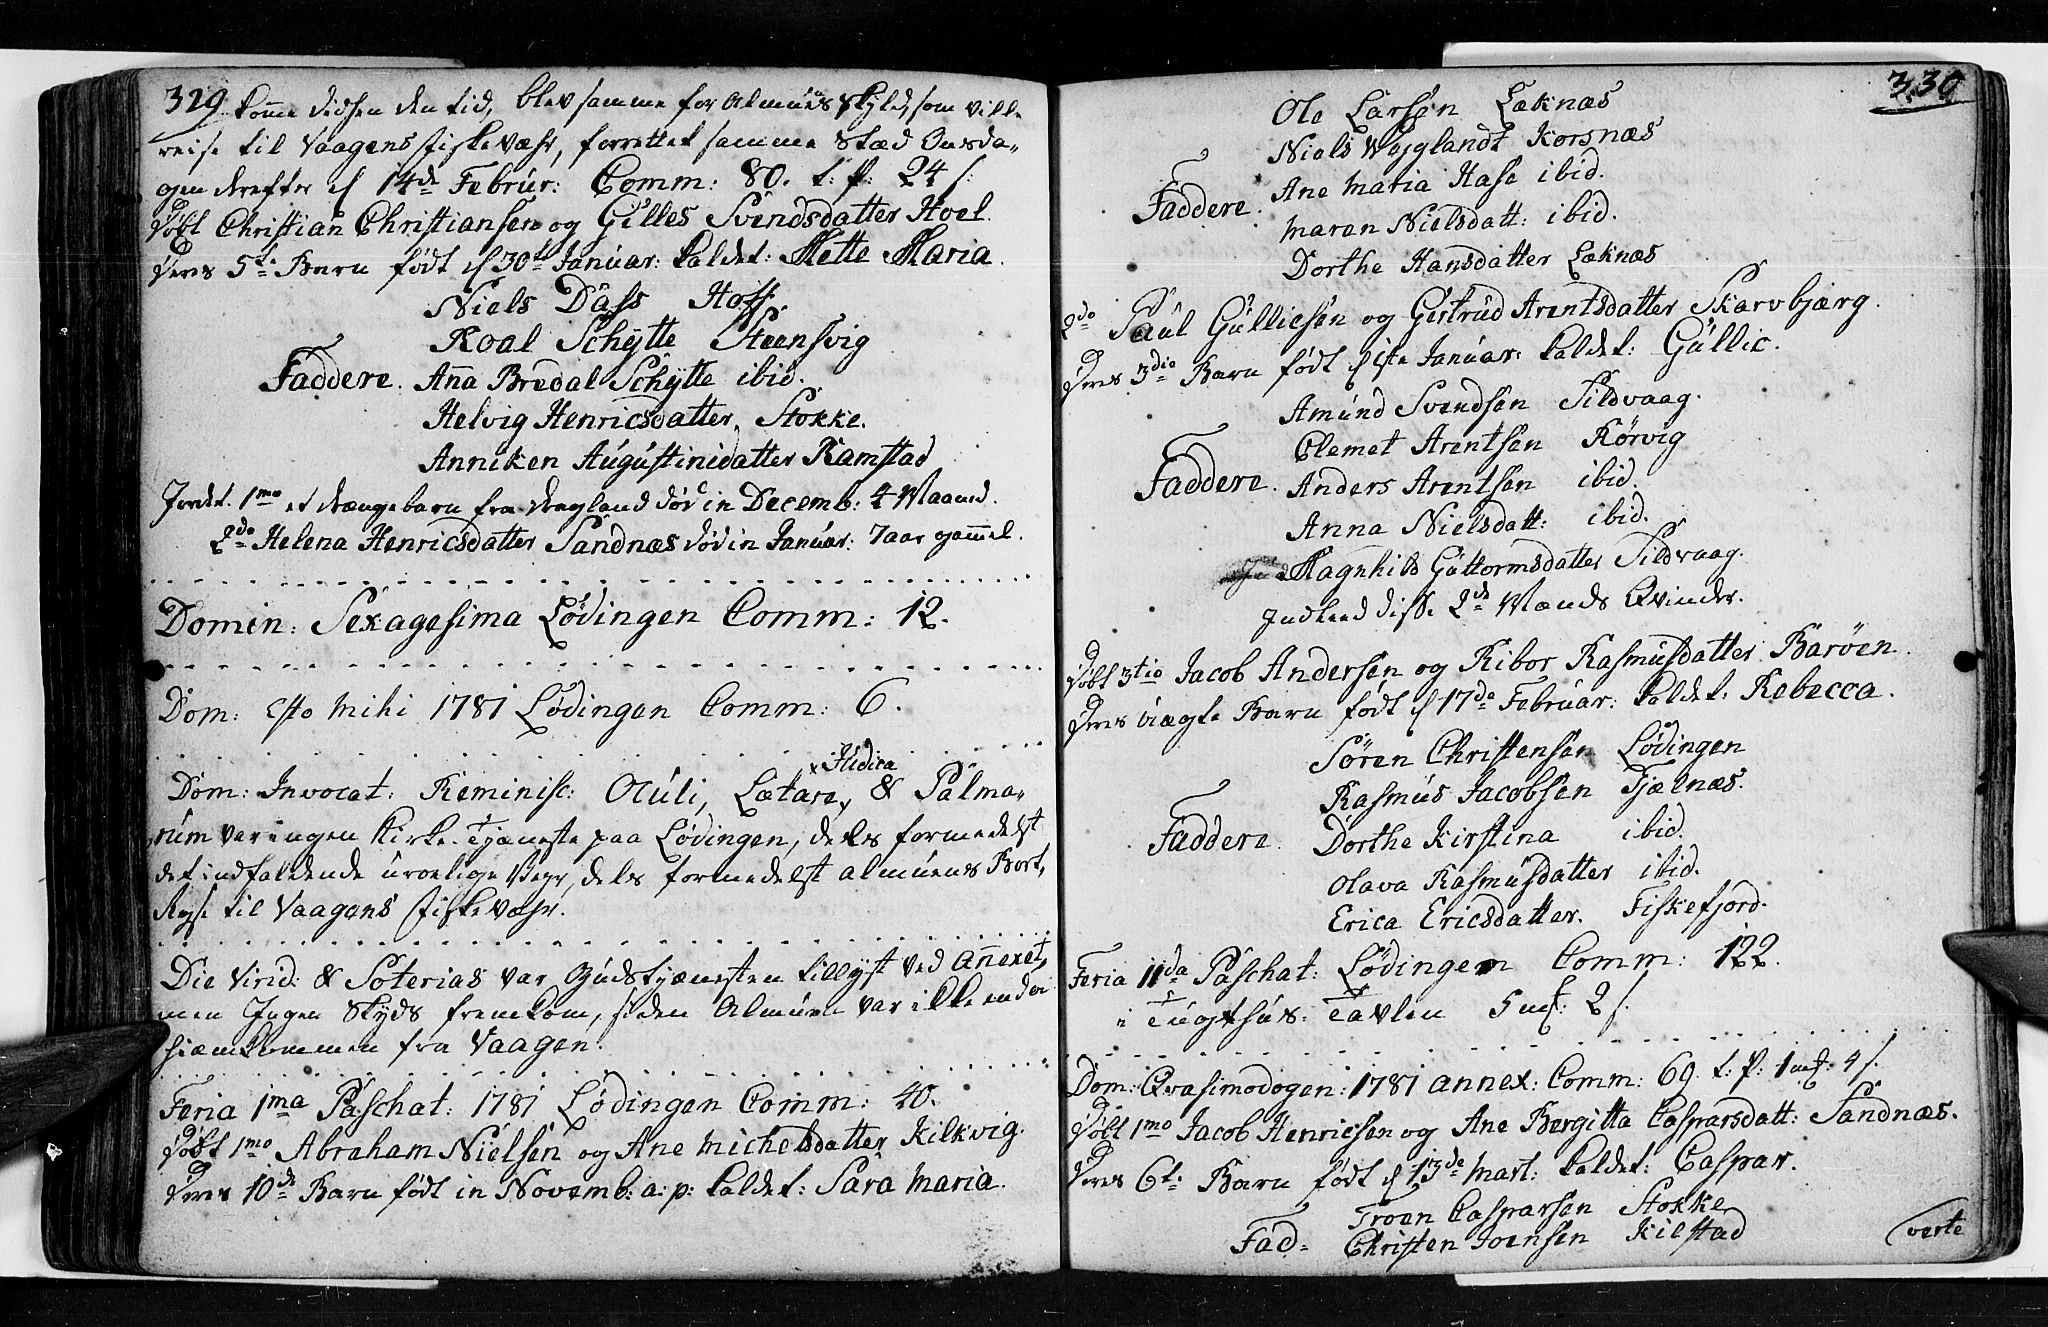 329. komme didhen den tid, blev samme for Almuens Skyld, som ville
reise til Vaagens fiskevæhr, forrettet samme Stæd Onsda-
gen derefter d 14de Februr: Comm: 80. t: p: 24 s:
Døbt Christian Christiansen og Gilles Svendsdatter Hoel.
Deres 5te Barn født d 30te Januar: kaldet: Mette Maria.
Niels Dass Hoff.
Roal Schytte Steensvig
Faddere. Anna Bredal Schytte ibid.
Helvig Henricsdatter, Stokke.
Anniken Augustinidatter Ramstad
Jordet. 1mo et drængebarn fra Dragland død in Decemb: 4 Maaned.
2do Helena Henricsdatter Sandnæs død in Januar: 7 aar gammel.
Domin: Sexagesima Lødingen Comm: 12.
Dom: esto mihi 1781 Lødingen Comm: 6.
Judica
Dom: Invocat: Reminisc: Oculi, Lætare, & Palma-
rum var ingen Kirke-Tjæneste paa Lødingen, dels formedelst
det indfaldende uroelige Veyr, dels formedelst almuens Bort,
Reyse til Vaagens fiskevæhr.
Die Virid: & Soterias var Gudstjænesten tillyst ved Annexet,
men Ingen Skyds fremkom, siden Almuen var ikke endnu
hiemkommen fra Vaagen.
Feria 1ma Paschat: 1781 Lødingen Comm: 40.
Døbt 1mo Abraham Nielsen og Ane Michelsdatter Kilkvig.
Deres 10de Barn født in Novemb: a: p: kaldet: Sara Maria.
330
Ole Larsen Læknæs
Niels Wejglandt Korsnæs
Faddere. Ane Maria Hase ibid.
Maren Nielsdatt: ibid.
Dorthe Hansdatter Læknæs
2do Paul Gulliesen og Gertrud Arentsdatter Skarvbjærg.
Deres 3dio Barn født d 1ste Januar: kaldet: Gullic.
Amund Svendsen Sildvaag.
Clemet Arentsen Rørvig
Faddere. Anders Arentsen ibid.
Anna Nielsdatt: ibid.
Magnhild Guttormsdatter Sildvaag.
Indleed disse 2de Mænds Qvinder.
Døbt 3tio Jacob Andersen og Ribor Rasmusdatter Barøen.
Deres ægte Barn født d 17de Februar: kaldet: Rebecca.
Søren Christensen Lødingen
Rasmus Jacobsen Fjælnæs.
Faddere. Dorthe Kirstina ibid.
Olava Rasmusdatter ibid.
Erica Ericsdatter. Fiskefjord.
Feria 11da Paschat: Lødingen Comm: 122.
i Tugthus-Tavlen 5 mk: 2 s.
Dom: Qvasimodogen: 1781 annex: Comm: 69. t: p: 1 mk: 4 s.
Døbt 1mo Jacob Henricsen og Ane Bergitta Casparsdatt: Sandnæs.
Deres 6te Barn født d 13de Mart: kaldet: Caspar.
Troen Casparsen Stokke
Fad- Christen Joensen Kilstad
verte